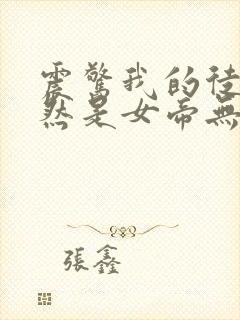 震驚我的徒
然是女帝無
張鑫